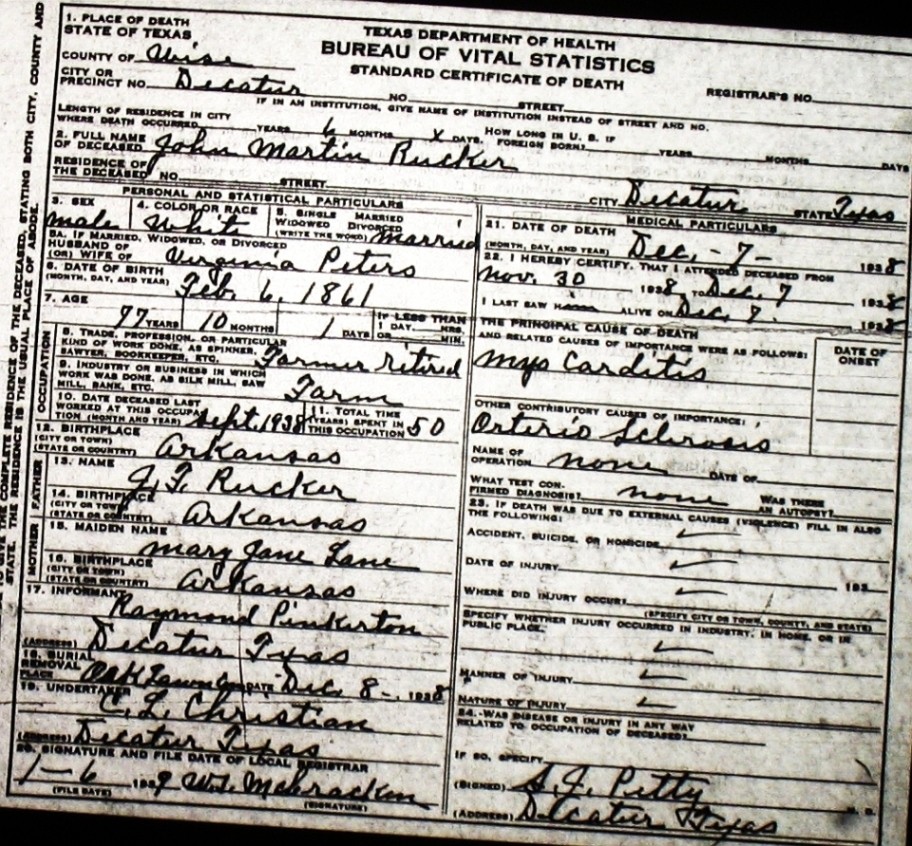 1. PLACE OF DEATH
STATE OF TEXAS
TEXAS DEPARTMENT OF HEALTH
BUREAU OF VITAL STATISTICS
STANDARD CERTIFICATE OF DEATH
COUNTY OF Wise
CITY OR PRECINCT NO. Decatur NO. STREET REGISTRAR'S NO.
IF IN AN INSTITUTION, GIVE NAME OF INSTITUTION INSTEAD OF STREET AND NO.
LENGTH OF RESIDENCE IN CITY WHERE DEATH OCCURRED YEARS 6 MONTHS X DAYS HOW LONG IN U. S. IF FOREIGN BORN? YEARS MONTHS DAYS
2. FULL NAME OF DECEASED John Martin Rucker
RESIDENCE OF THE DECEASED NO. STREET CITY Decatur STATE Texas
PERSONAL AND STATISTICAL PARTICULARS
3. SEX male
4. COLOR OR RACE White
5. SINGLE MARRIED WIDOWED DIVORCED (WRITE THE WORD) married
5A. IF MARRIED, WIDOWED, OR DIVORCED
HUSBAND OF (OR) WIFE OF Verginia Peters
6. DATE OF BIRTH (MONTH, DAY, AND YEAR) Feb. 6, 1861
7. AGE 77 YEARS 10 MONTHS 1 DAYS IF LESS THAN 1 DAY HRS. OR MIN.
OCCUPATION
8. TRADE, PROFESSION, OR PARTICULAR KIND OF WORK DONE, AS SPINNER, SAWYER, BOOKKEEPER, ETC. Farmer retired
9. INDUSTRY OR BUSINESS IN WHICH WORK WAS DONE, AS SILK MILL, SAW MILL, BANK, ETC. Farm
10. DATE DECEASED LAST WORKED AT THIS OCCUPATION (MONTH AND YEAR) Sept. 1938
11. TOTAL TIME (YEARS) SPENT IN THIS OCCUPATION 50
12. BIRTHPLACE (CITY OR TOWN) (STATE OR COUNTRY) Arkansas
FATHER
13. NAME J. F. Rucker
14. BIRTHPLACE (CITY OR TOWN) (STATE OR COUNTRY) Arkansas
MOTHER
15. MAIDEN NAME mary Jane Lane
16. BIRTHPLACE (CITY OR TOWN) (STATE OR COUNTRY) Arkansas
17. INFORMANT Raymond Pinkerton
(ADDRESS) Decatur Texas
18. BURIAL REMOVAL PLACE Oak Lawn DATE Dec. 8 - 1938
19. UNDERTAKER C. L. Christian
(ADDRESS) Decatur Texas
20. SIGNATURE AND FILE DATE OF LOCAL REGISTRAR
1-6 1939
(FILE DATE) (SIGNATURE)
MEDICAL PARTICULARS
21. DATE OF DEATH (MONTH, DAY, AND YEAR) Dec. - 7 - 1938
22. I HEREBY CERTIFY, THAT I ATTENDED DECEASED FROM
Nov. 30 1938 TO Dec. 7 1938
I LAST SAW H ALIVE ON Dec. 7. 1938
THE PRINCIPAL CAUSE OF DEATH AND RELATED CAUSES OF IMPORTANCE WERE AS FOLLOWS:
DATE OF ONSET
myo Carditis
OTHER CONTRIBUTORY CAUSES OF IMPORTANCE:
Orterio Sclerosis
NAME OF OPERATION none DATE OF
WHAT TEST CONFIRMED DIAGNOSIS? none WAS THERE AN AUTOPSY?
23. IF DEATH WAS DUE TO EXTERNAL CAUSES (VIOLENCE) FILL IN ALSO THE FOLLOWING:
ACCIDENT, SUICIDE, OR HOMICIDE ✓
DATE OF INJURY ✓ 193
WHERE DID INJURY OCCUR? ✓
(SPECIFY CITY OR TOWN, COUNTY, AND STATE)
SPECIFY WHETHER INJURY OCCURRED IN INDUSTRY, IN HOME, OR IN PUBLIC PLACE. ✓
MANNER OF INJURY ✓
NATURE OF INJURY ✓
24. WAS DISEASE OR INJURY IN ANY WAY RELATED TO OCCUPATION OF DECEASED?
IF SO, SPECIFY
(SIGNED) S. J. Petty M. D.
(ADDRESS) Decatur Texas
STATE. THE RESIDENCE IS THE USUAL PLACE OF ABODE.
COMPLETE RESIDENCE OF THE DECEASED, STATING BOTH CITY, COUNTY AND